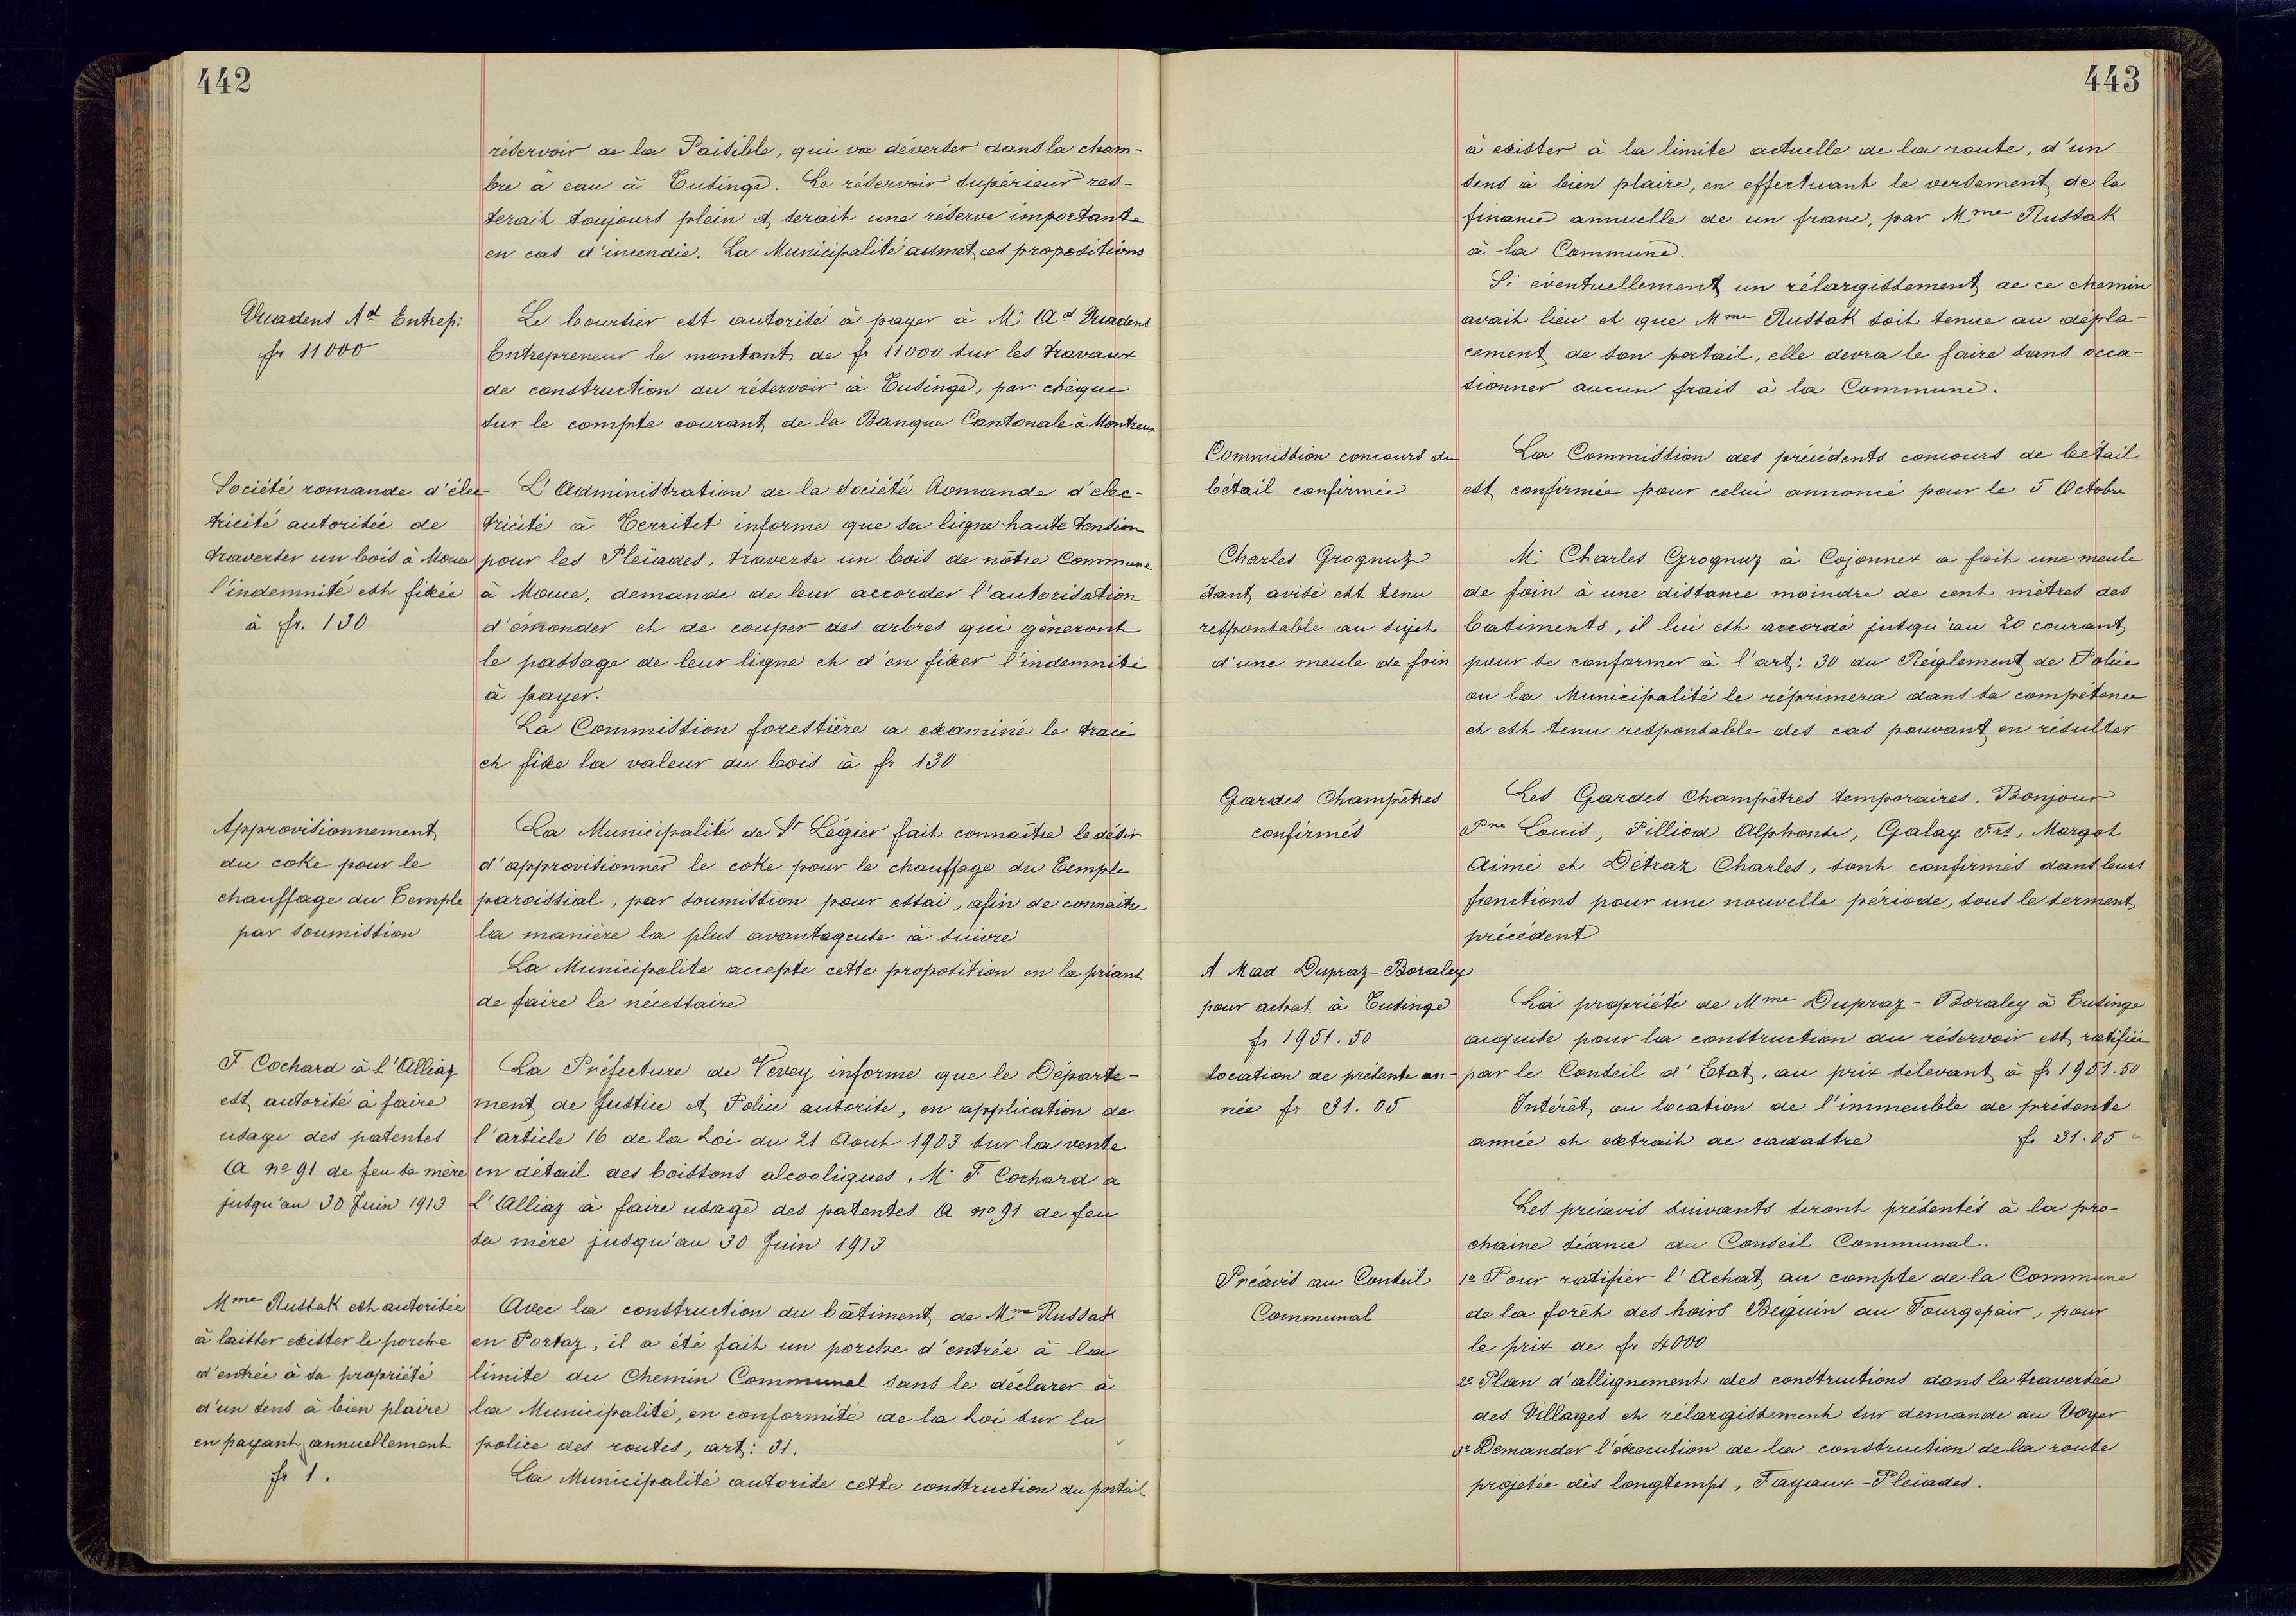 442
réservoir de la Paisible, qui va déverser dans la cham-
bre à eau à Tusinge. Le réservoir supérieur res-
terait toujours plein et serait une réserve importante
en cas d'incendie. La Municipalité admet ces propositions
Vuadens Ad Entrep:
fr 11000
Le boursier est autorisé à payer à Mr Ad Vuadens
Entrepreneur le montant de fr 11000 sur les travaux
de construction du réservoir à Tusinge, par chèque
sur le compte courant de la Banque Cantonale à Montreux
Société romande d'élec-
tricité autorisée de
traverser un bois à Mouce
l'indemnité est fixée
à fr. 130
L'Administration de la Société Romande d'elec-
tricité à Territet informe que sa ligne haute tension
pour les Pleïades, traverse un bois de nôtre Commune
à Mouce, demande de leur accorder l'autorisation
d'émonder et de couper des arbres qui gêneront
le passage de leur ligne et d'en fixer l'indemnité
à payer.
La Commission forestière a examiné le tracé
et fixe la valeur du bois à fr 130
Approvisionnement
du coke pour le
chauffage du Temple
par soumission
La Municipalité de St Légier fait connaître le désir
d'approvisionner le coke pour le chauffage du Temple
paroissial, par soumission pour essai, afin de connaitre
la manière la plus avantageuse à suivre
La Municipalite accepte cette proposition en la priant
de faire le nécessaire
F. Cochard à l'Alliaz
est autorisé à faire
usage des patentes
A no 91 de feu sa mère
jusqu'au 30 Juin 1913
La Préfecture de Vevey informe que le Départe-
ment de Justice et Police autorise, en application de
l'article 16 de la Loi du 21 Aout 1903 sur la vente
en détail des boissons alcooliques, Mr F. Cochard a
L'Alliaz à faire usage des patentes A no 91 de feu
sa mère jusqu'au 30 Juin 1913
Mme Russak est autorisée
à laisser exister le porche
d'entrée à sa propriété
d'un sens à bien plaire
en payant annuellement
fr 1.
Avec la construction du bâtiment de Mme Russak
en Portaz, il a été fait un porche d'entrée à la
limite du Chemin Communal sans le déclarer à
la Municipalité, en conformité de la Loi sur la
police des routes, art: 31.
La Municipalité autorise cette construction du portail
443
à exister à la limite actuelle de la route, d'un
sens à bien plaire, en effectuant le versement de la
finance annuelle de un franc, par Mme Russak
à la Commune.
Si éventuellement un rélargissement de ce chemin
avait lieu et que Mme Russak soit tenue au dépla-
cement de son portail, elle devra le faire sans occa-
sionner aucun frais à la Commune.
Commission concours du
bétail confirmée
La Commission des précédents concours de bétail
est confirmée pour celui annoncé pour le 5 Octobre
Charles Grognuz
étant avisé est tenu
responsable au sujet
d'une meule de foin
Mr Charles Grognuz à Cojonnex a fait une meule
de foin à une distance moindre de cent mètres des
batiments, il lui est accordé jusqu'au 20 courant
pour se conformer à l'art: 30 du Réglement de Police
ou la Municipalité le réprimera dans sa compétence
et est tenu responsable des cas pouvant en résulter
Gardes Champêtres
confirmés
Les Gardes Champêtres temporaires, Bonjour
Pre Louis, Pilliod Alphonse, Galay Frs, Margot
Aimé et Détraz Charles, sont confirmés dans leurs
fonctions pour une nouvelle période, sous le serment
précédent
A Mad Dupraz-Boraley
pour achat à Tusinge
fr 1951.50
location de présente an-
née fr 31.05
La propriété de Mme Dupraz-Boraley à Tusinge
acquise pour la construction du réservoir est ratifiée
par le Conseil d'Etat, au prix s'élevant à fr 1951.50
Intérêt ou location de l'immeuble de présente
année et extrait de cadastre fr 31.05
Les préavis suivants seront présentés à la pro-
chaine séance du Conseil Communal.
Préavis au Conseil
Communal
1o Pour ratifier l'Achat au compte de la Commune
de la forêt des hoirs Béguin au Fourgepair, pour
le prix de fr 4000
2o Plan d'allignement des constructions dans la traversée
des Villages et rélargissement sur demande du Voyer
3o Demander l'éxecution de la construction de la route
projetée dès longtemps, Fayaux-Pleïades.